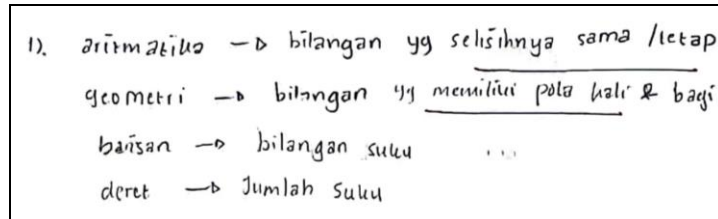 1). aritmatika → bilangan yg selisihnya sama /tetap
geometri → bilangan yg memiliki pola kali & bagi
barisan → bilangan suku ...
deret → Jumlah suku